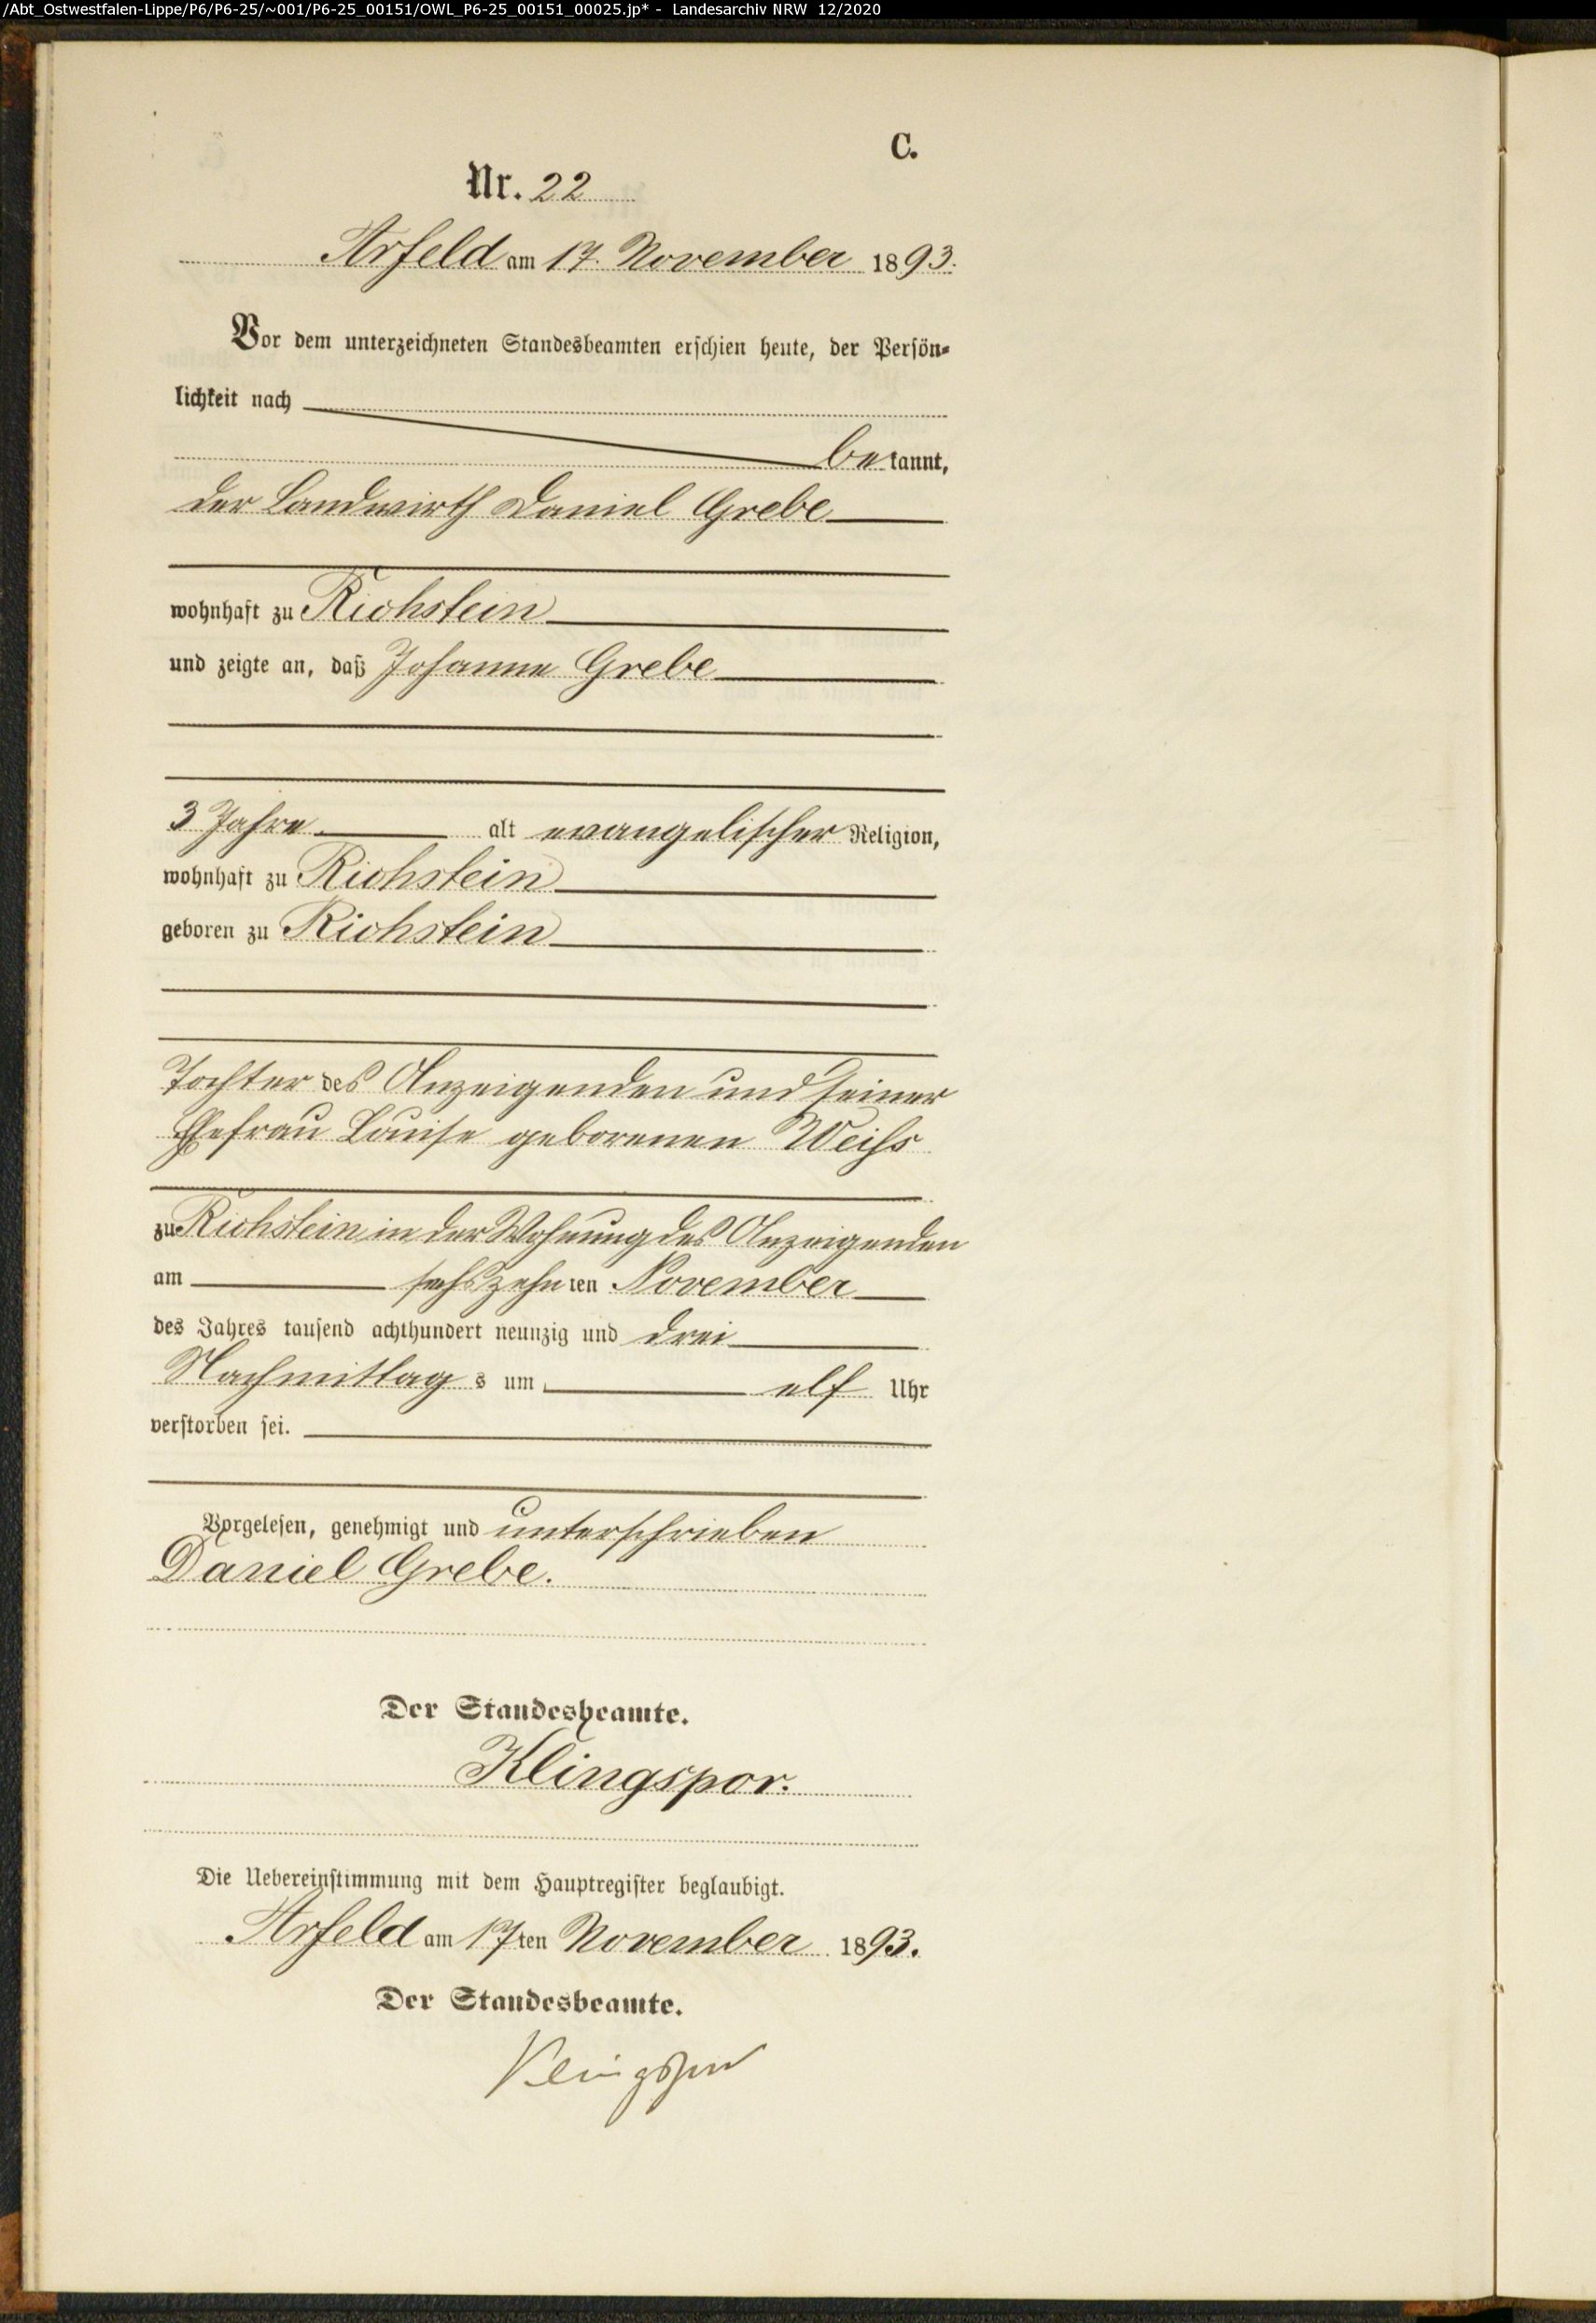 /Abt_Ostwestfalen-Lippe/P6/P6-25/~001/P6-25_00151/OWL_P6-25_00151_00025.jp* - Landesarchiv NRW 12/2020
C.
Nr. 22
Arfeld am 17. November 1893.
Vor dem unterzeichneten Standesbeamten erschien heute, der Persön-
lichkeit nach
bekannt,
der Landwirth Daniel Grebe
wohnhaft zu Richstein
und zeigte an, daß Johanne Grebe
3 Jahre alt evangelischer Religion,
wohnhaft zu Richstein
geboren zu Richstein
Tochter des Anzeigenden und seiner
Ehefrau Louise geborenen Weiss
zu Richstein in der Wohnung des Anzeigenden
am sechszehnten November
des Jahres tausend achthundert neunzig und drei
Nachmittags um elf Uhr
verstorben sei.
Vorgelesen, genehmigt und unterschrieben
Daniel Grebe.
Der Standesbeamte.
Klingspor.
Die Uebereinstimmung mit dem Hauptregister beglaubigt.
Arfeld am 17ten November 1893.
Der Standesbeamte.
Klingspor